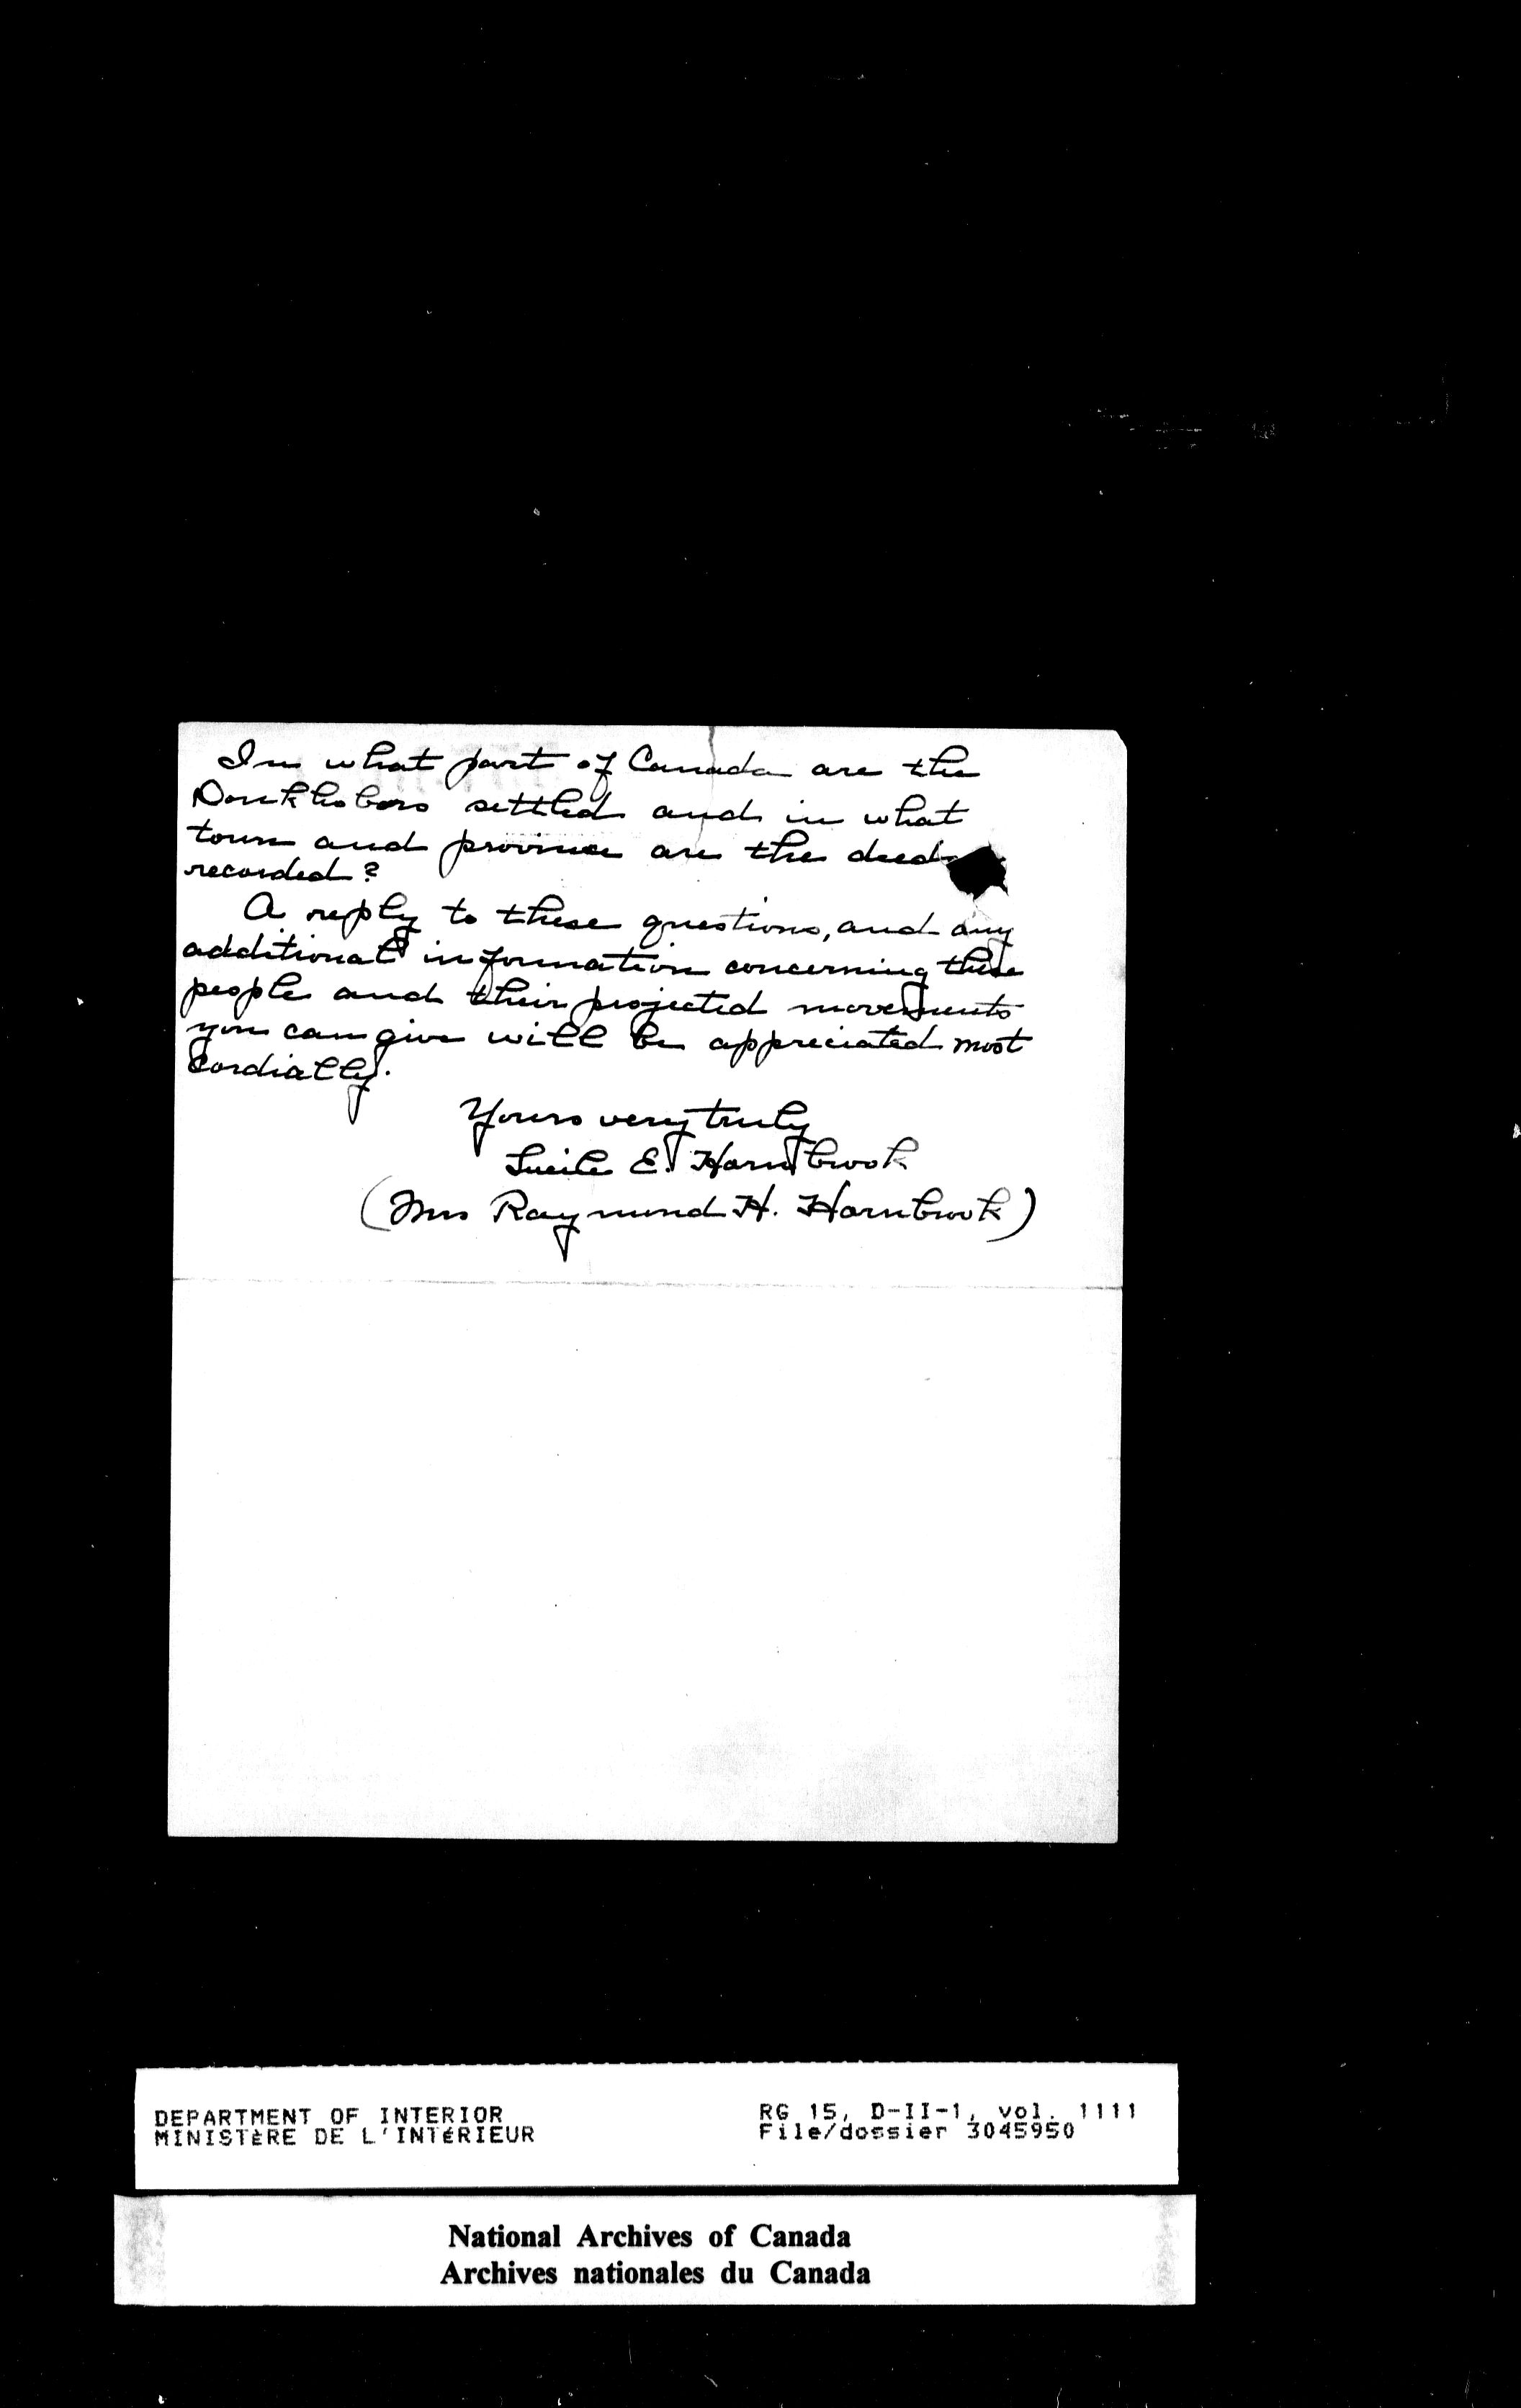 In what part of Canada are the
Doukhobors settled and in what
town and province are the deeds
recorded?
A reply to these questions, and any
additional information concerning these
people and their projected movements
you can give will be appreciated most
cordially.
Yours very truly
Lucile E. Hornbrook
(Mrs Raymond H. Hornbrook)
DEPARTMENT OF INTERIOR
MINISTÈRE DE L'INTÉRIEUR
RG 15, D-II-1, vol. 1111
File/dossier 3045950
National Archives of Canada
Archives nationales du Canada